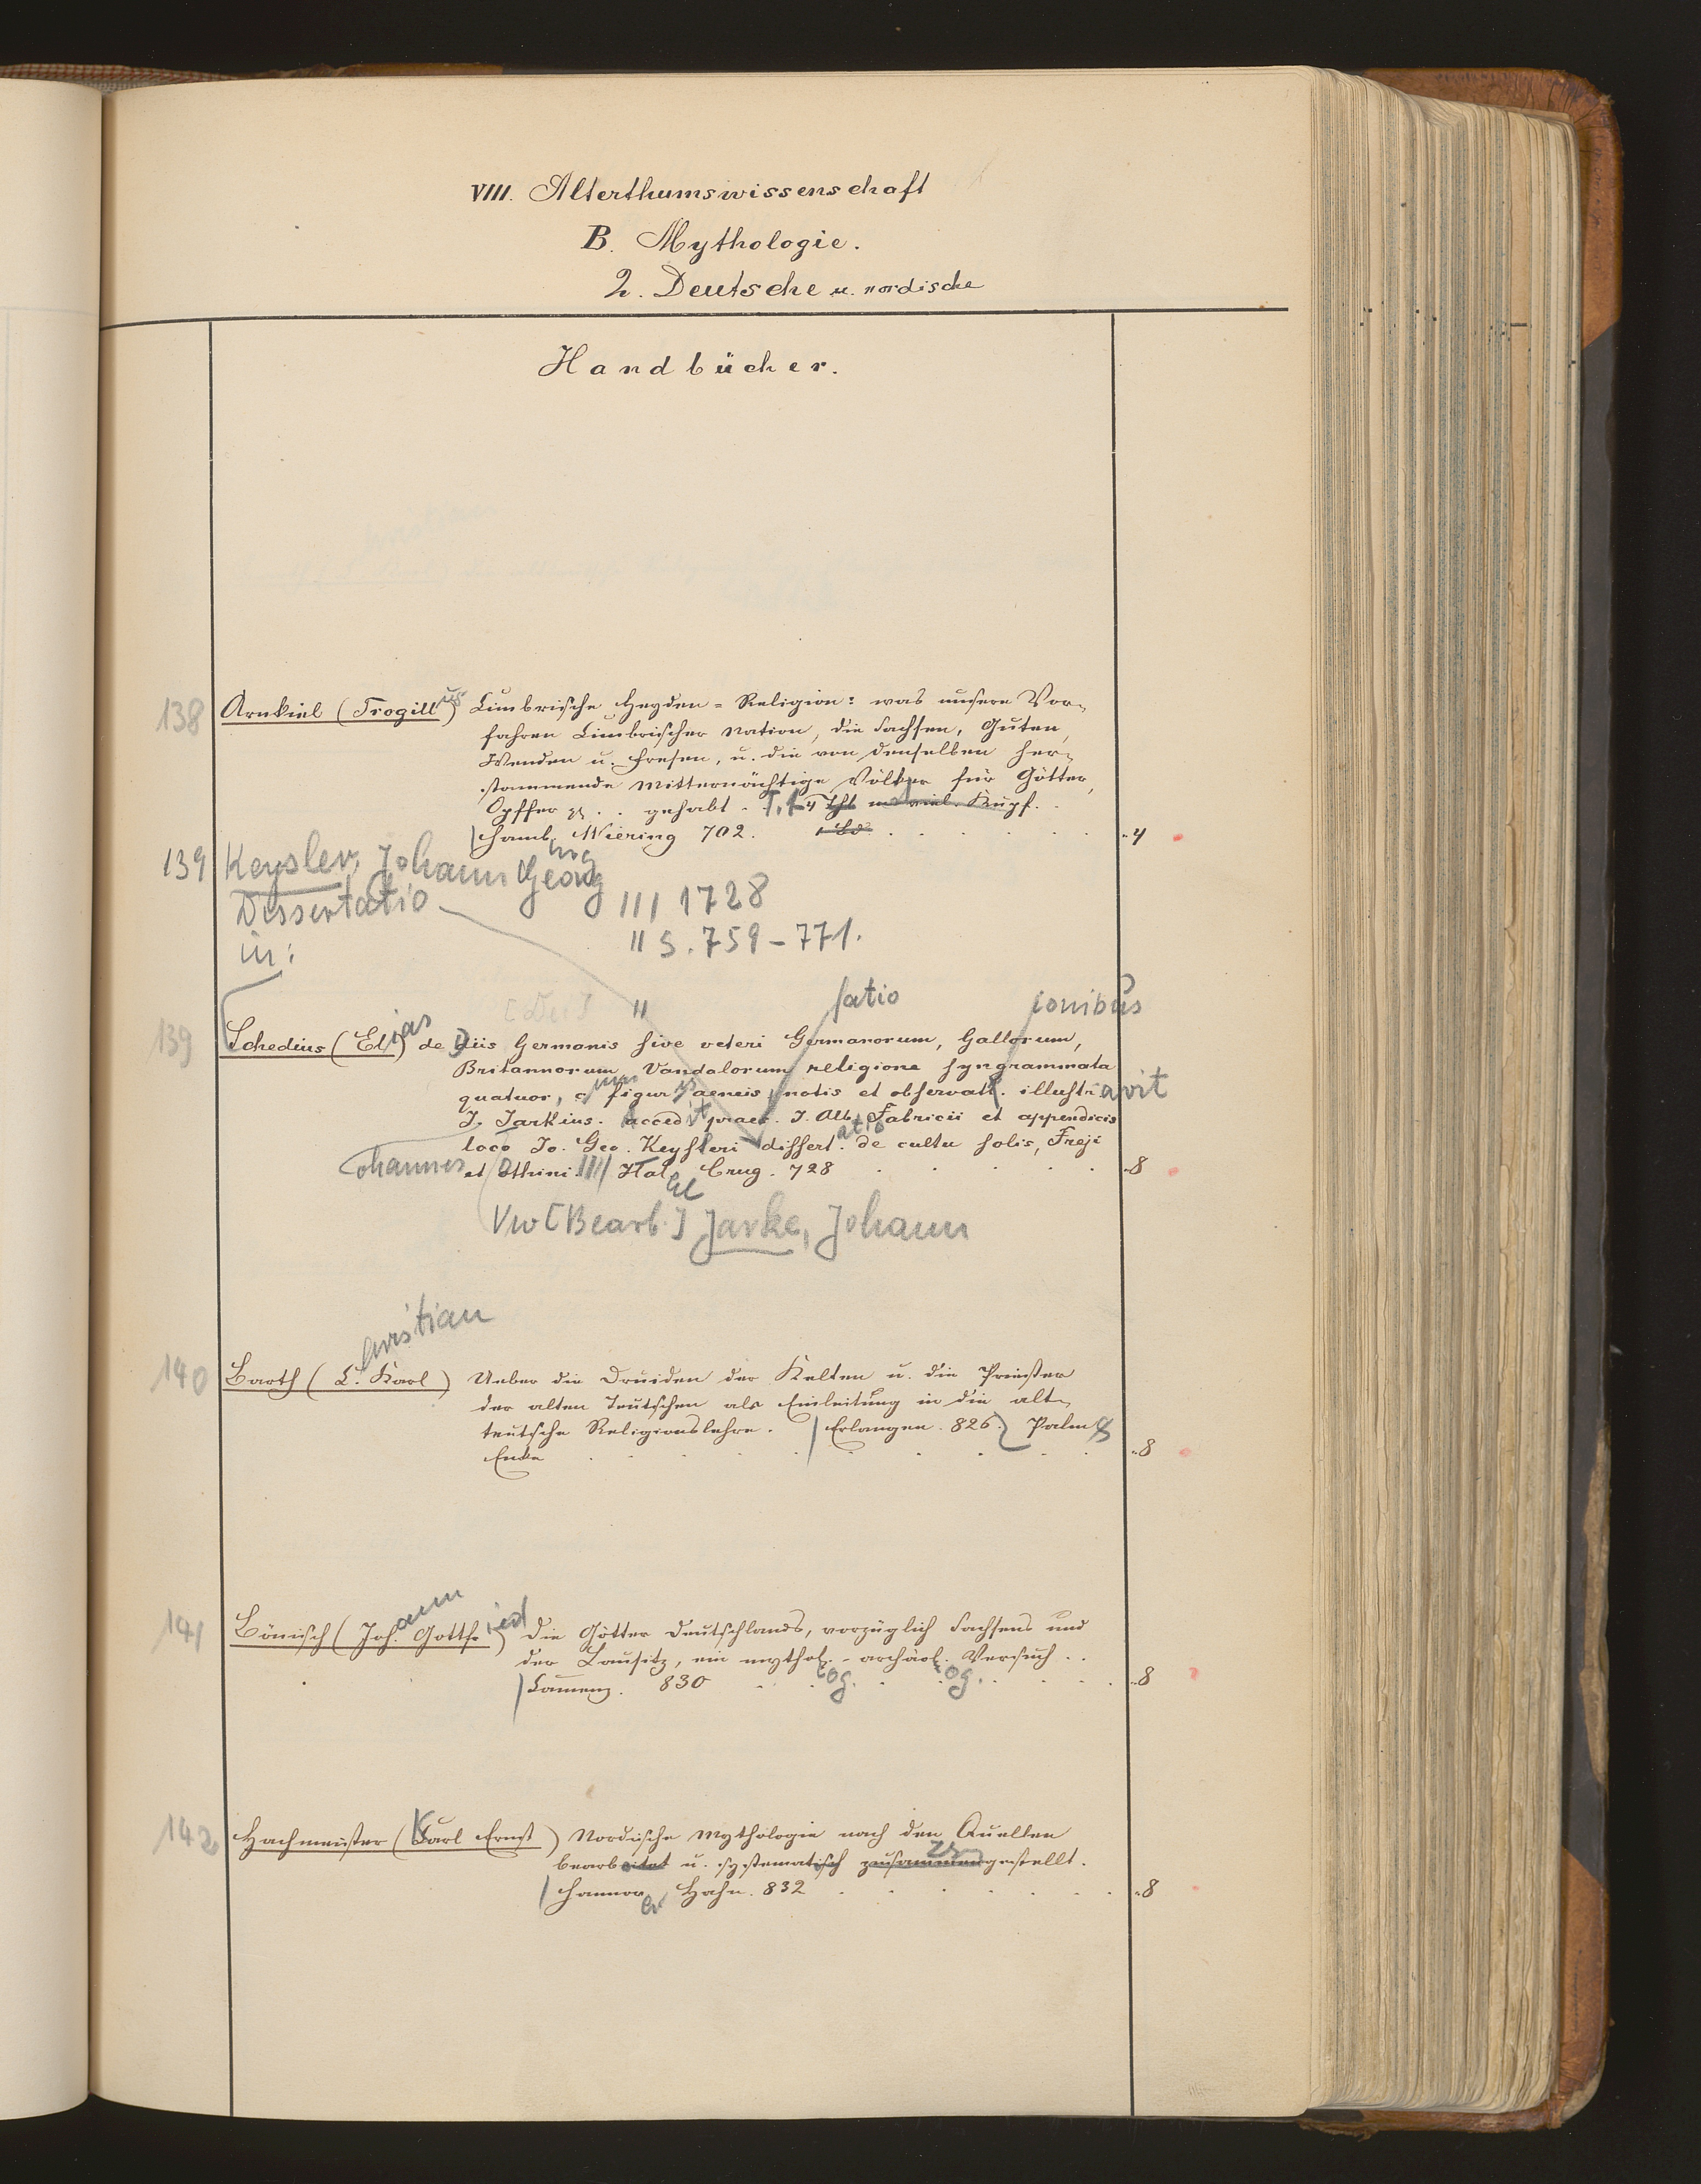 VIII. Alterthumswissenschaft
B. Mythologie.
2. Deutsche u. nordische
Handbücher.
138 Arnkiel (Trogillus) Cimbrische Heyden-Religion: was unsere Vor-
fahren Cimbrischer Nation, die Sachsen, Guten,
Wenden u. Fresen, u. die von denselben her-
stammende Mitternächtige Völker für Götter,
Opffer gehabt. 4 Thl m. viel. Kupf.
Hamb. Wiering 702. 1 Bd. 4
139 Keysler, Johann Georg
Dissertatio /// 1728
in: // S. 759-771.
satio ionibus
139 Schedius (Elias) de Diis Germanis sive veteri Germanorum, Gallorum,
Britannorum, Vandalorum religione syngrammata
quatuor, cum figuris aeneis, notis et observatt. illustravit
J. Jarkius. Accedit praef. J. Alb. Fabricii et appendicis
loco Jo. Geo. Keysleri dissert. de cultu solis, Freji
ohannes et Othini. //// Hal Crug. 728 8
Vw [Bearb.] Jarke, Johann
140 Barth (C. hristian Karl) Ueber die Druiden der Kelten u. die Priester
der alten Teutschen als Einleitung in die alt-
teutsche Religionslehre. Erlangen. 826. Palm &
Enke 8
141 Bönisch (Joh. ann Gottfr. ied) Die Götter Deutschlands, vorzüglich Sachsens und
der Lausitz, ein mythol.-archäol. Versuch..
Camenz. 830 og. og. 8
142 Hachmeister (Karl Ernst) Nordische Mythologie nach den Quellen
bearbeitet u. systematisch zusammengestellt.
Hannover Hahn. 832 8